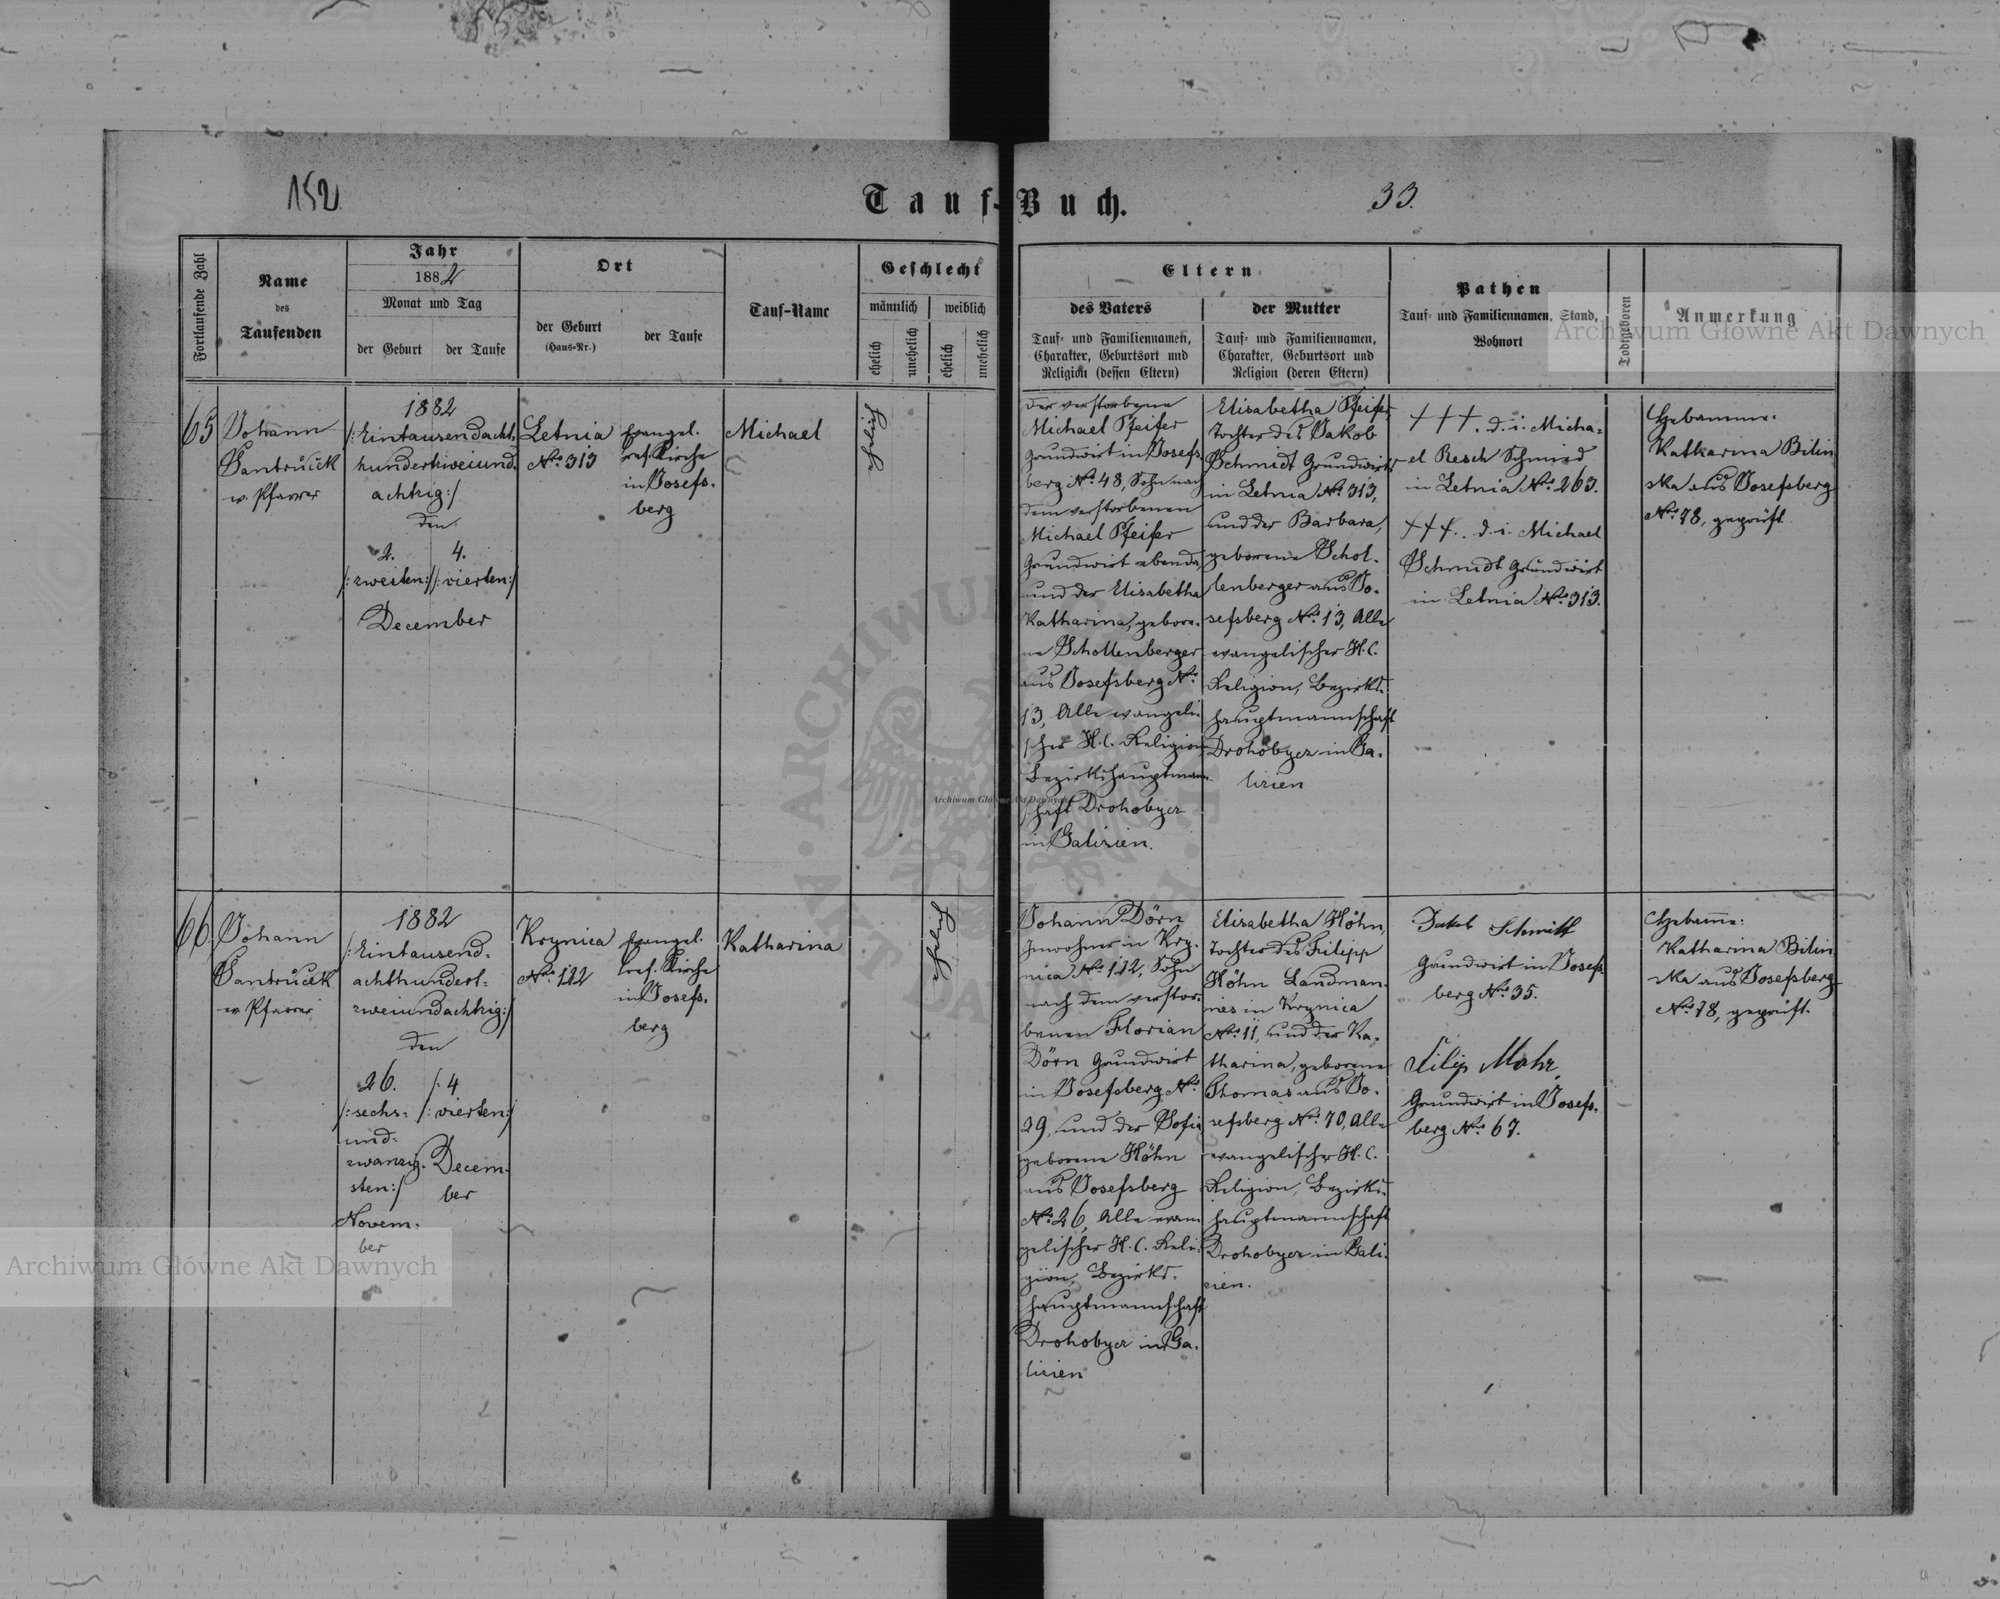 152
Tauf-Buch.
33.
Fortlaufende Zahl
Name
des
Taufenden
Jahr
1882
Monat und Tag
der Geburt
der Taufe
Ort
der Geburt
(Haus-Nr.)
der Taufe
Tauf-Name
Geschlecht
männlich
weiblich
ehelich
unehelich
ehelich
unehelich
Eltern
des Vaters
Tauf- und Familiennamen,
Charakter, Geburtsort und
Religion (dessen Eltern)
der Mutter
Tauf- und Familiennamen,
Charakter, Geburtsort und
Religion (deren Eltern)
Pathen
Tauf- und Familiennamen, Stand,
Wohnort
Todtgeboren
Anmerkung
65
Johann
Jantrůček
ev. Pfarrer
1882
/:Eintausendacht-
hundertzweiund-
achtzig:/
den
2.
/:zweiten:/
4.
/:vierten:/
December
Letnia
No 313
Evangel.
ref. Kirche
in Josefs-
berg
Michael
ehelich
der verstorbene
Michael Pfeifer
Grundwirt in Josefs-
berg No 48, Sohn nach
dem verstorbenen
Michael Pfeifer
Grundwirt ebenda,
und der Elisabetha
Katharina, gebore-
ne Schollenberger
aus Josefsberg No
13, Alle evangeli-
scher H.C. Religion,
Bezirkshauptmann-
schaft Drohobycz
in Galizien.
Elisabetha Pfeifer,
Tochter des Jakob
Schmidt Grundwirts
in Letnia No 313,
und der Barbara,
geborene Schol-
lenberger aus Jo-
sefsberg No 13, Alle
evangelischer H.C.
Religion, Bezirks-
hauptmannschaft
Drohobycz in Ga-
lizien
+++. d.i. Micha-
el Resch Schmied
in Letnia No 263.
+++. d.i. Michael
Schmidt Grundwirt
in Letnia No 313.
Hebamme:
Katharina Bilin
ska aus Josefsberg
No 78, geprüft
66.
Johann
Jantrůček
ev. Pfarrer
1882
/:Eintausend-
achthundert-
zweiundachtzig:/
den
26.
/:sechs-
und-
zwanzig-
sten:/
Novem-
ber
/:4
/:vierten:/
Decem-
ber
Krynica
No 122
Evangel.
ref. Kirche
in Josefs-
berg
Katharina
ehelich
Johann Dörn
Inwohner in Kry-
nica No 122, Sohn
nach dem verstor-
benen Florian
Dörn Grundwirt
in Josefsberg No
29, und der Sofia
geborene Höhn
aus Josefsberg
No 26, Alle evan
gelischer H.C. Reli-
gion, Bezirks-
hauptmannschaft
Drohobycz in Ga-
lizien
Elisabetha Höhn,
Tochter des Filipp
Höhn Landman-
nes in Krynica
No 11, und der Ka-
tharina, geborene
Thomas aus Jo-
sefsberg No 70, Alle
evangelischer H.C.
Religion, Bezirks-
hauptmannschaft
Drohobycz in Gali-
zien.
Jakob Schmitt
Grundwirt in Josefs-
berg No 35.
Filip Mohr,
Grundwirt in Josefs-
berg No 67.
Hebamme:
Katharina Bilin
ska aus Josefsberg
No 78, geprüft.
Archiwum Główne Akt Dawnych
Archiwum Główne Akt Dawnych
Archiwum Główne Akt Dawnych